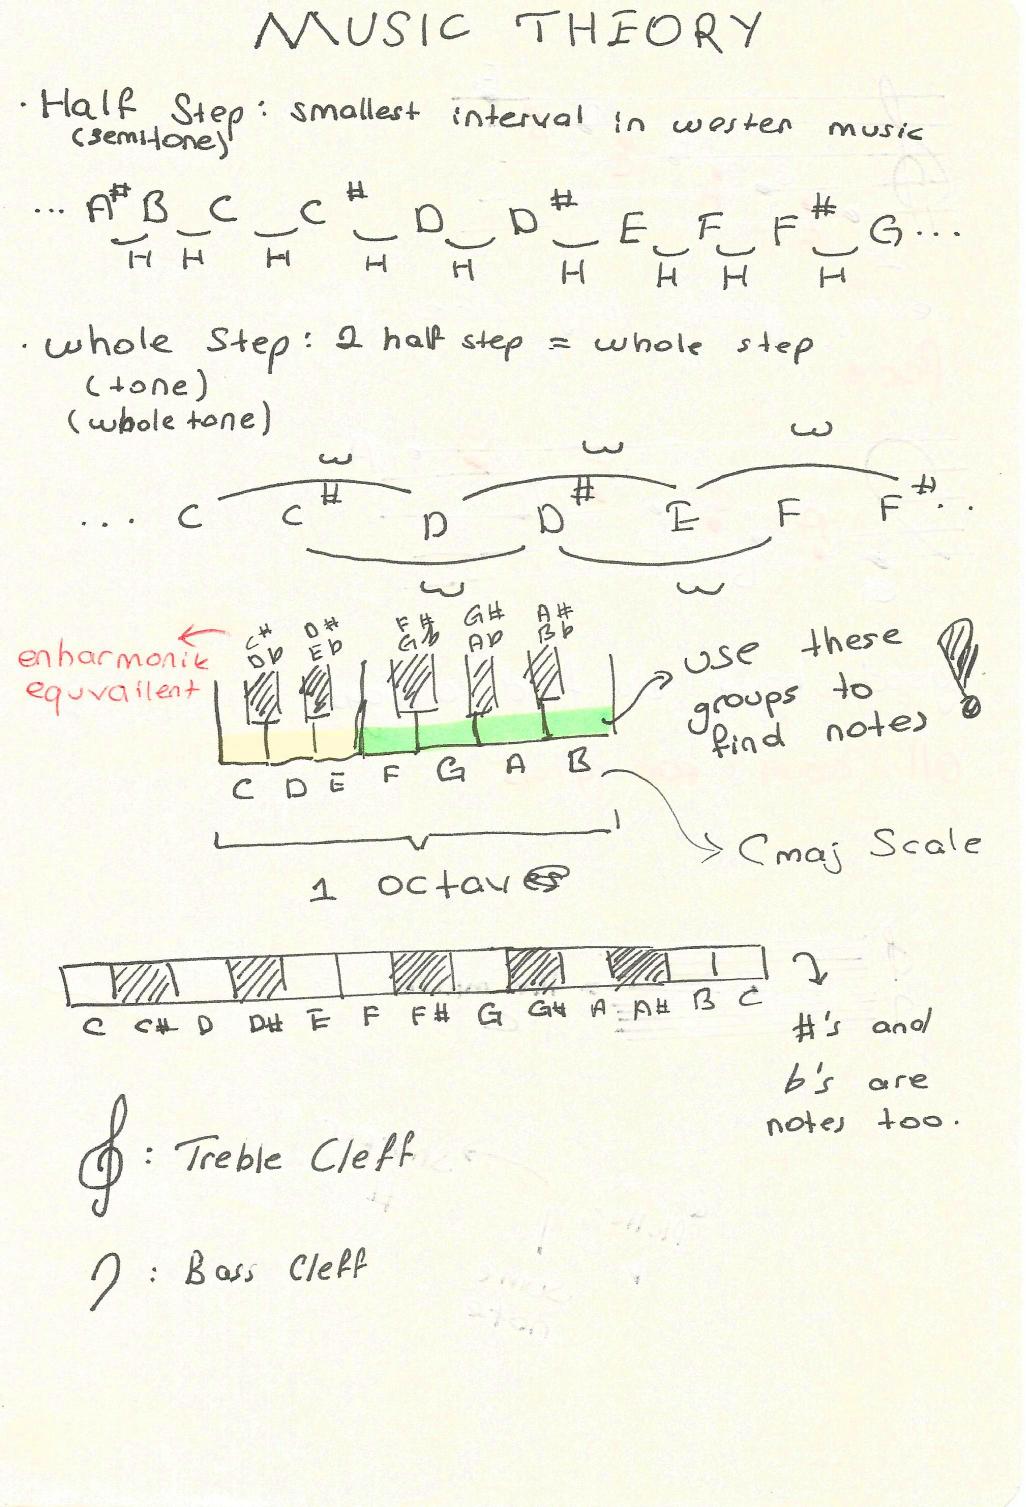 MUSIC THEORY
· Half Step: smallest interval in western music
(semitone)
... A# B C C# D D# E F F# G...
H H H H H H H H H
· Whole Step: 2 half step = whole step
(tone)
(whole tone)
W W W
... C C# D D# E F F#...
W W
C# D# F# G# A#
Db Eb Gb Ab Bb
enharmonik
equvailent
use these
groups to
find notes
C D E F G A B
Cmaj Scale
1 octave
C C# D D# E F F# G G# A A# B C
#'s and
b's are
notes too.
: Treble Cleff
: Bass Cleff